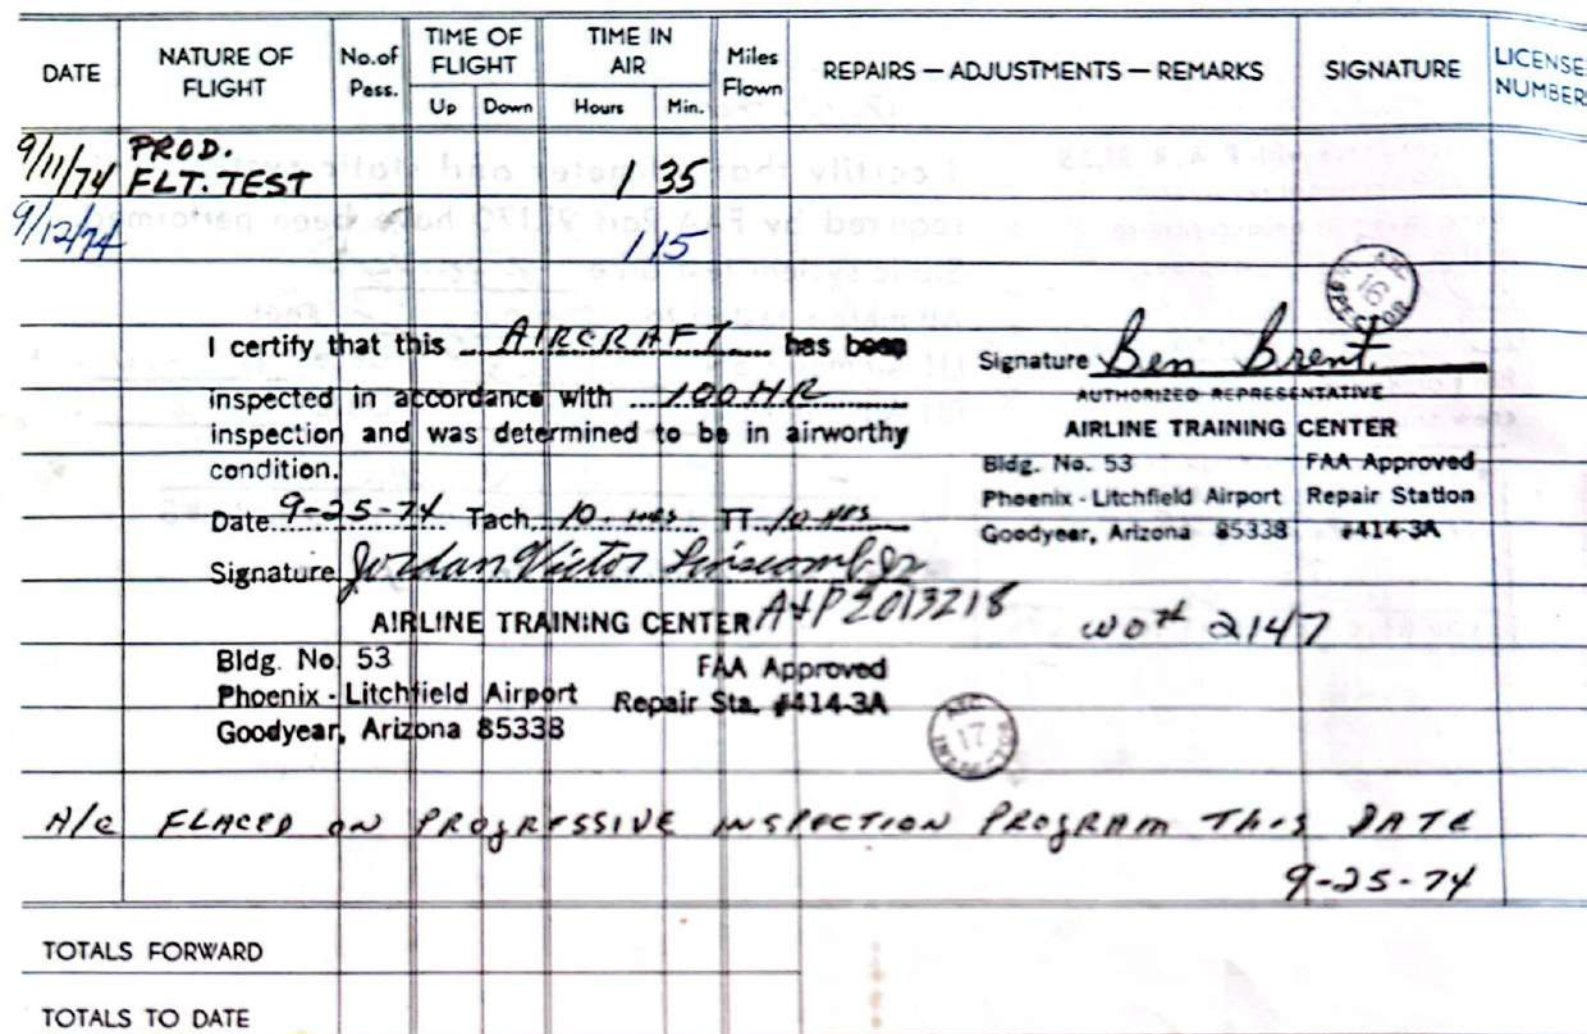 DATE NATURE OF FLIGHT No.of Pass. TIME OF FLIGHT Up Down TIME IN AIR Hours Min. Miles Flown REPAIRS — ADJUSTMENTS — REMARKS SIGNATURE LICENSE NUMBER
9/11/74 PROD. FLT. TEST 1 35
9/12/74 1 15
I certify that this AIRCRAFT has been
inspected in accordance with 100 HR
inspection and was determined to be in airworthy
condition.
Date 9-25-74 Tach. 10. HRS TT 10 HRS
Signature Jordan Victor
AIRLINE TRAINING CENTER A&P 2013218
Bldg. No. 53 FAA Approved
Phoenix - Litchfield Airport Repair Sta. #414-3A
Goodyear, Arizona 85338
Signature Ben Brent
AUTHORIZED REPRESENTATIVE
AIRLINE TRAINING CENTER
Bldg. No. 53 FAA Approved
Phoenix - Litchfield Airport Repair Station
Goodyear, Arizona 85338 #414-3A
WO# 2147
16
17
A/C PLACED ON PROGRESSIVE INSPECTION PROGRAM THIS DATE
9-25-74
TOTALS FORWARD
TOTALS TO DATE